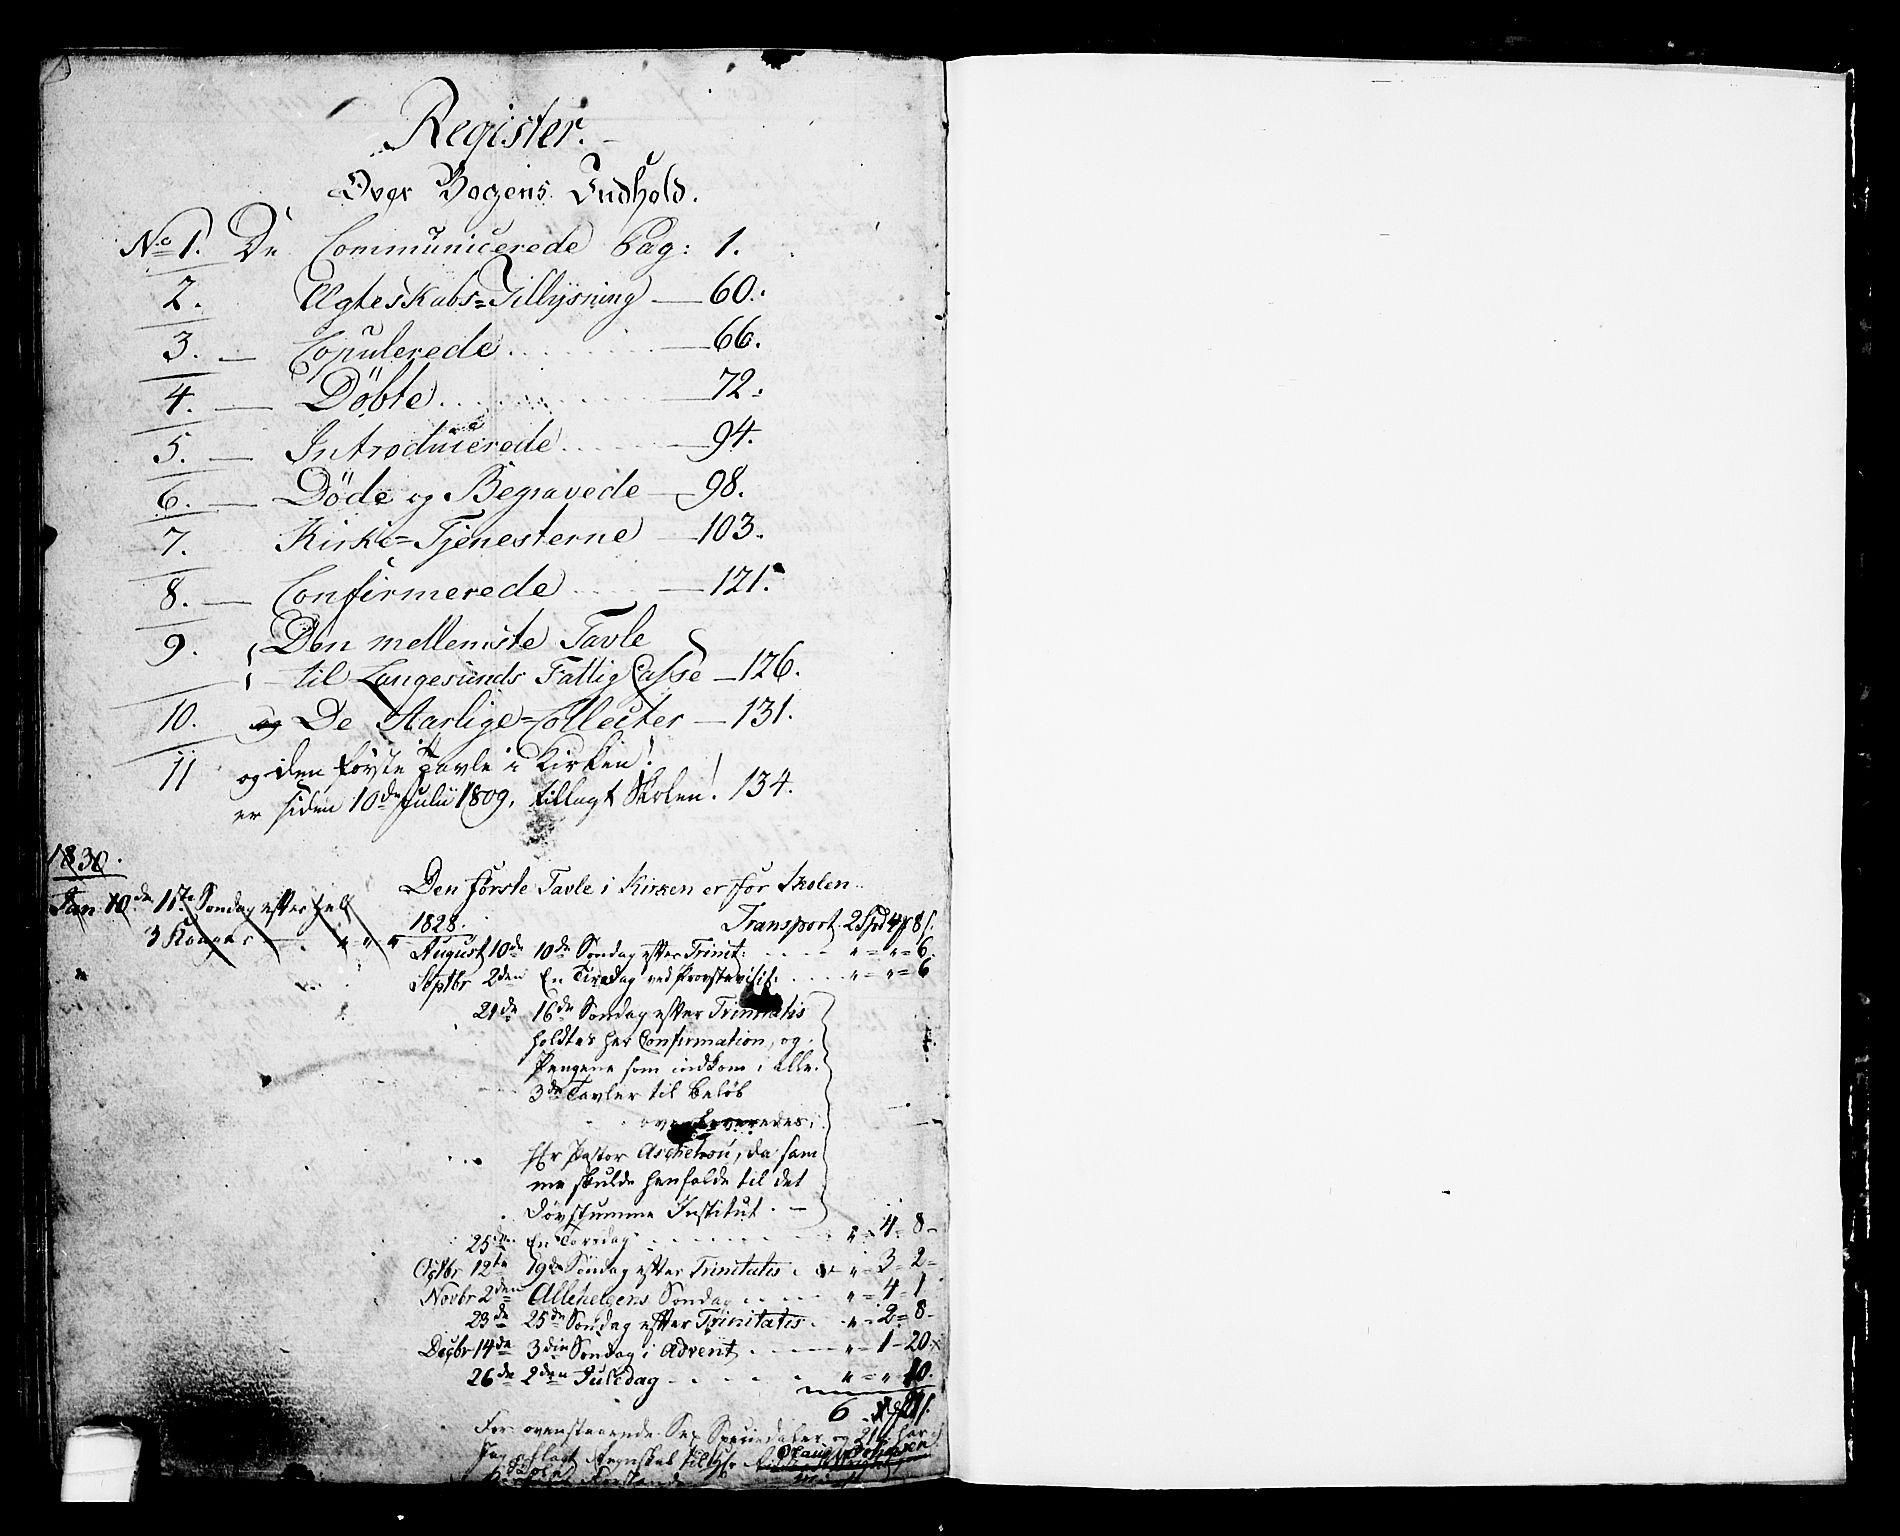 Register.
Over Bogens Indhold.
No 1. De Communicerede Pag: 1.
2. Ægteskabs=Tillysning — 60.
3. — Copulerede . . . . . — 66.
4. — Döbte . . . . . — 72.
5. — Introducerede . . . . — 94.
6. — Döde og Begravede — 98.
7. Kirke=Tjenesterne — 103.
8. — Confirmerede . . . . — 121.
9. Den mellemste Tavle
til Langesunds Fattig Casse — 126.
10. De Aarlige=Collecter — 131.
11 og den förste Tavle i Kirken!
er siden 10de Julii 1809, tillagt Skolen! 134.
1830.
Jan 10de 1ste Søndag efter hel
3 Konger — . " " "
Den förste Tavle i Kirken er for Skolen
1828. Transport. 2 Spd 4 8 s.
August 10de 10de Søndag efter Trinit: . . . . " = " = 6.
Septbr 2den En Tirsdag ved Provstevisit: . . . . " = " = 6
21de 16de Søndag efter Trinitatis
holdtes her Confirmation, og
Pengene som indkom i alle
3de Tavler til Beløb
overleveredes
Hr Pastor Aschehou, da sam
me skulde henfalde til det
Døvstumme Institut. —
25de En Torsdag . . . . . " = 4 = 8 —
Octbr 12te 19de Søndag efter Trinitatis . " = 3 = 2 =
Novbr 2den Allehelgens Søndag . . . . " = 4 = 1
23de 25de Søndag efter Trinitatis . " = 2 = 8 —
Decbr 14de 3die Søndag i Advent . . . . " = 1 — 20
26de 2den Juledag . . . . " = " = 10.
6 21 s.
For ovenstaaende Sex Speciedaler og 21 s har
Jeg aflagt Regnskab til Hr